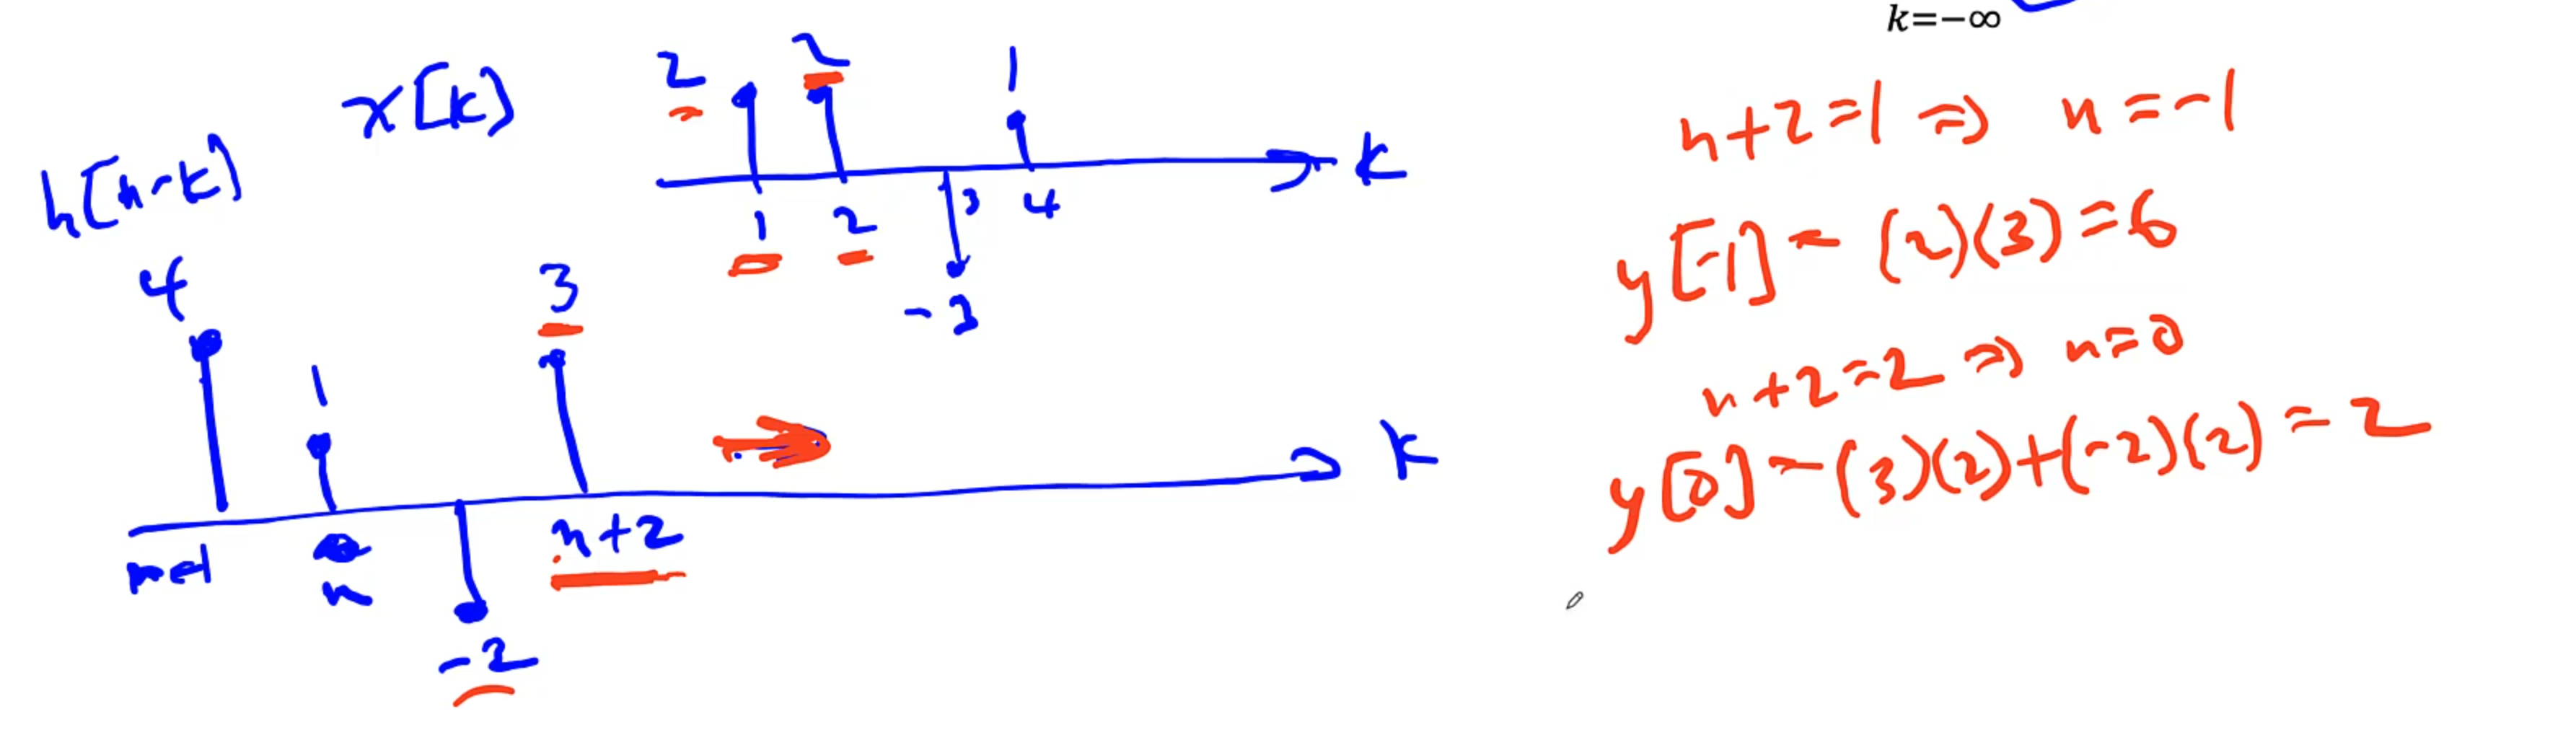 k=-∞
x[k]
2 2 1
k
1 2 3 4
-3
h[n-k]
4 1 3
k
n-1 n n+2
-2
n+2=1 ⇒ n=-1
y[-1] = (2)(3) = 6
n+2=2 ⇒ n=0
y[0] = (3)(2)+(-2)(2) = 2